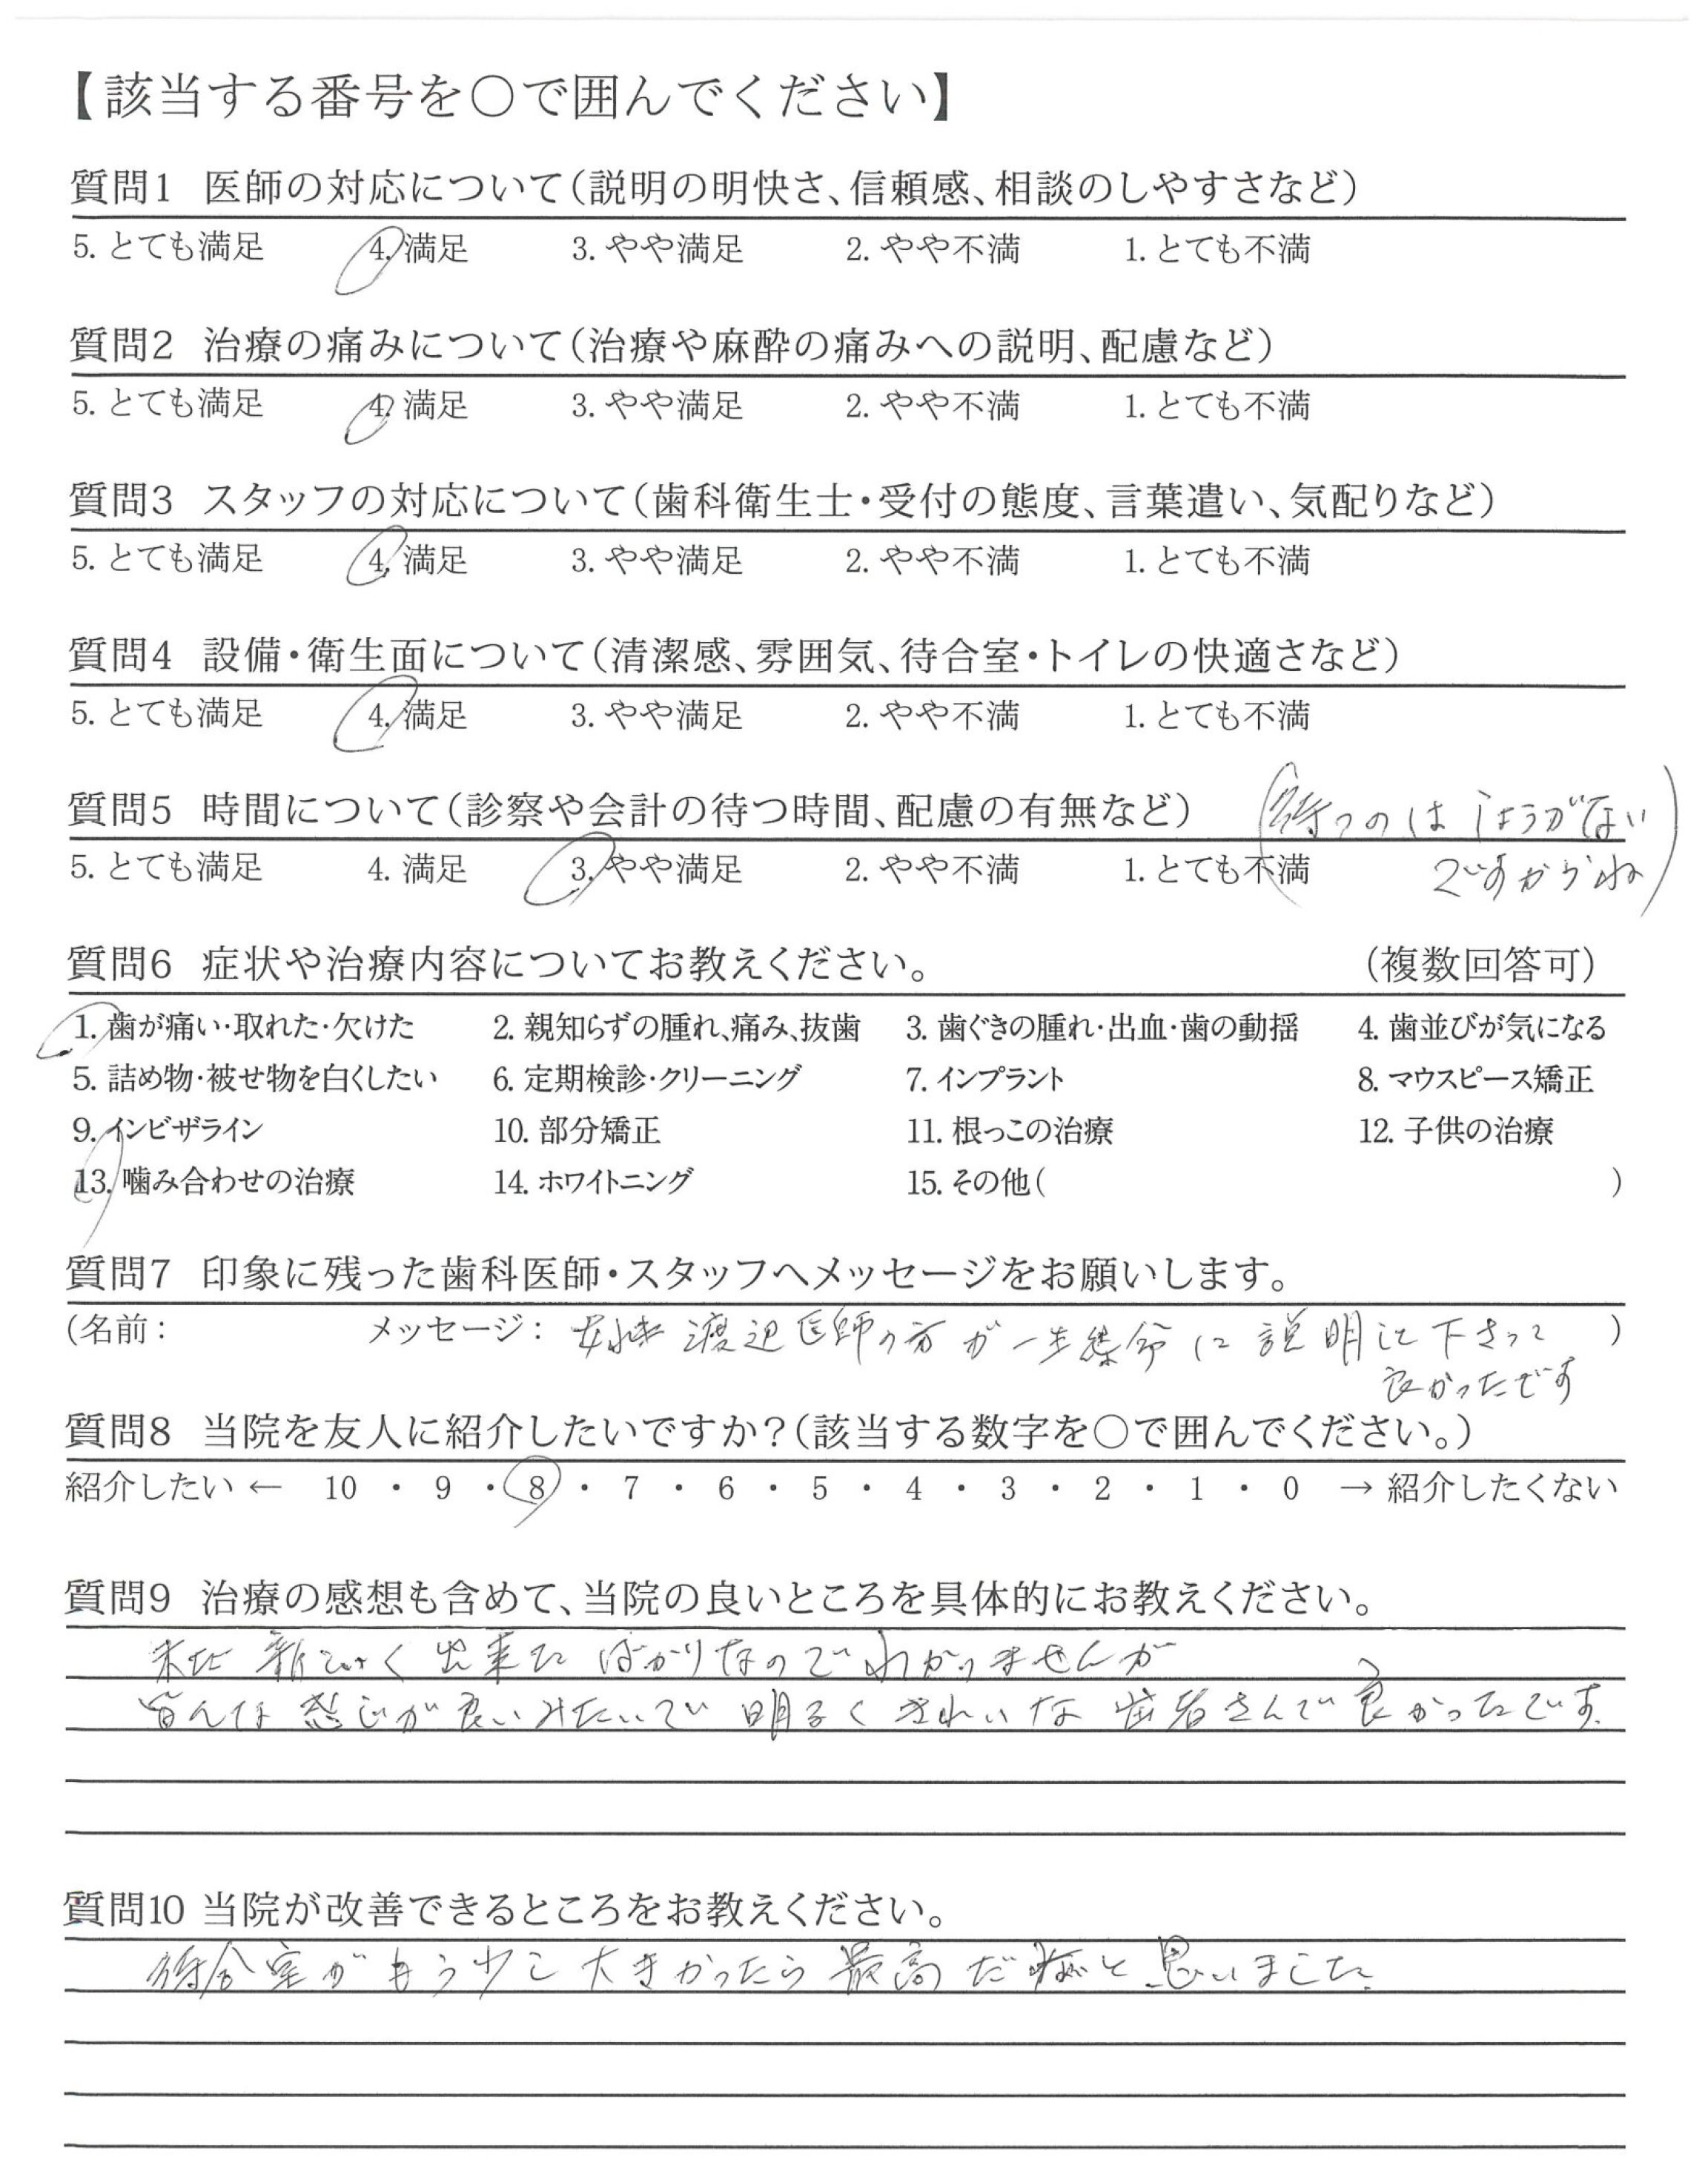 【該当する番号を○で囲んでください】
質問1 医師の対応について(説明の明快さ、信頼感、相談のしやすさなど)
5. とても満足 4. 満足 3. やや満足 2. やや不満 1. とても不満
質問2 治療の痛みについて(治療や麻酔の痛みへの説明、配慮など)
5. とても満足 4. 満足 3. やや満足 2. やや不満 1. とても不満
質問3 スタッフの対応について(歯科衛生士・受付の態度、言葉遣い、気配りなど)
5. とても満足 4. 満足 3. やや満足 2. やや不満 1. とても不満
質問4 設備・衛生面について(清潔感、雰囲気、待合室・トイレの快適さなど)
5. とても満足 4. 満足 3. やや満足 2. やや不満 1. とても不満
質問5 時間について(診察や会計の待つ時間、配慮の有無など) (待つのはしょうがない
5. とても満足 4. 満足 3. やや満足 2. やや不満 1. とても不満 ですからね)
質問6 症状や治療内容についてお教えください。 (複数回答可)
1. 歯が痛い・取れた・欠けた 2. 親知らずの腫れ、痛み、抜歯 3. 歯ぐきの腫れ・出血・歯の動揺 4. 歯並びが気になる
5. 詰め物・被せ物を白くしたい 6. 定期検診・クリーニング 7. インプラント 8. マウスピース矯正
9. インビザライン 10. 部分矯正 11. 根っこの治療 12. 子供の治療
13. 噛み合わせの治療 14. ホワイトニング 15. その他( )
質問7 印象に残った歯科医師・スタッフへメッセージをお願いします。
(名前: メッセージ: 渡辺医師の方が一生懸命に説明して下さって )
良かったです
質問8 当院を友人に紹介したいですか?(該当する数字を○で囲んでください。)
紹介したい ← 10 ・ 9 ・ 8 ・ 7 ・ 6 ・ 5 ・ 4 ・ 3 ・ 2 ・ 1 ・ 0 → 紹介したくない
質問9 治療の感想も含めて、当院の良いところを具体的にお教えください。
新しく出来たばかりなのでわかりませんが
皆んな感じが良いみたいで明るくきれいな さんで良かったです
質問10 当院が改善できるところをお教えください。
待合室がもう少し大きかったら最高だ と思いました